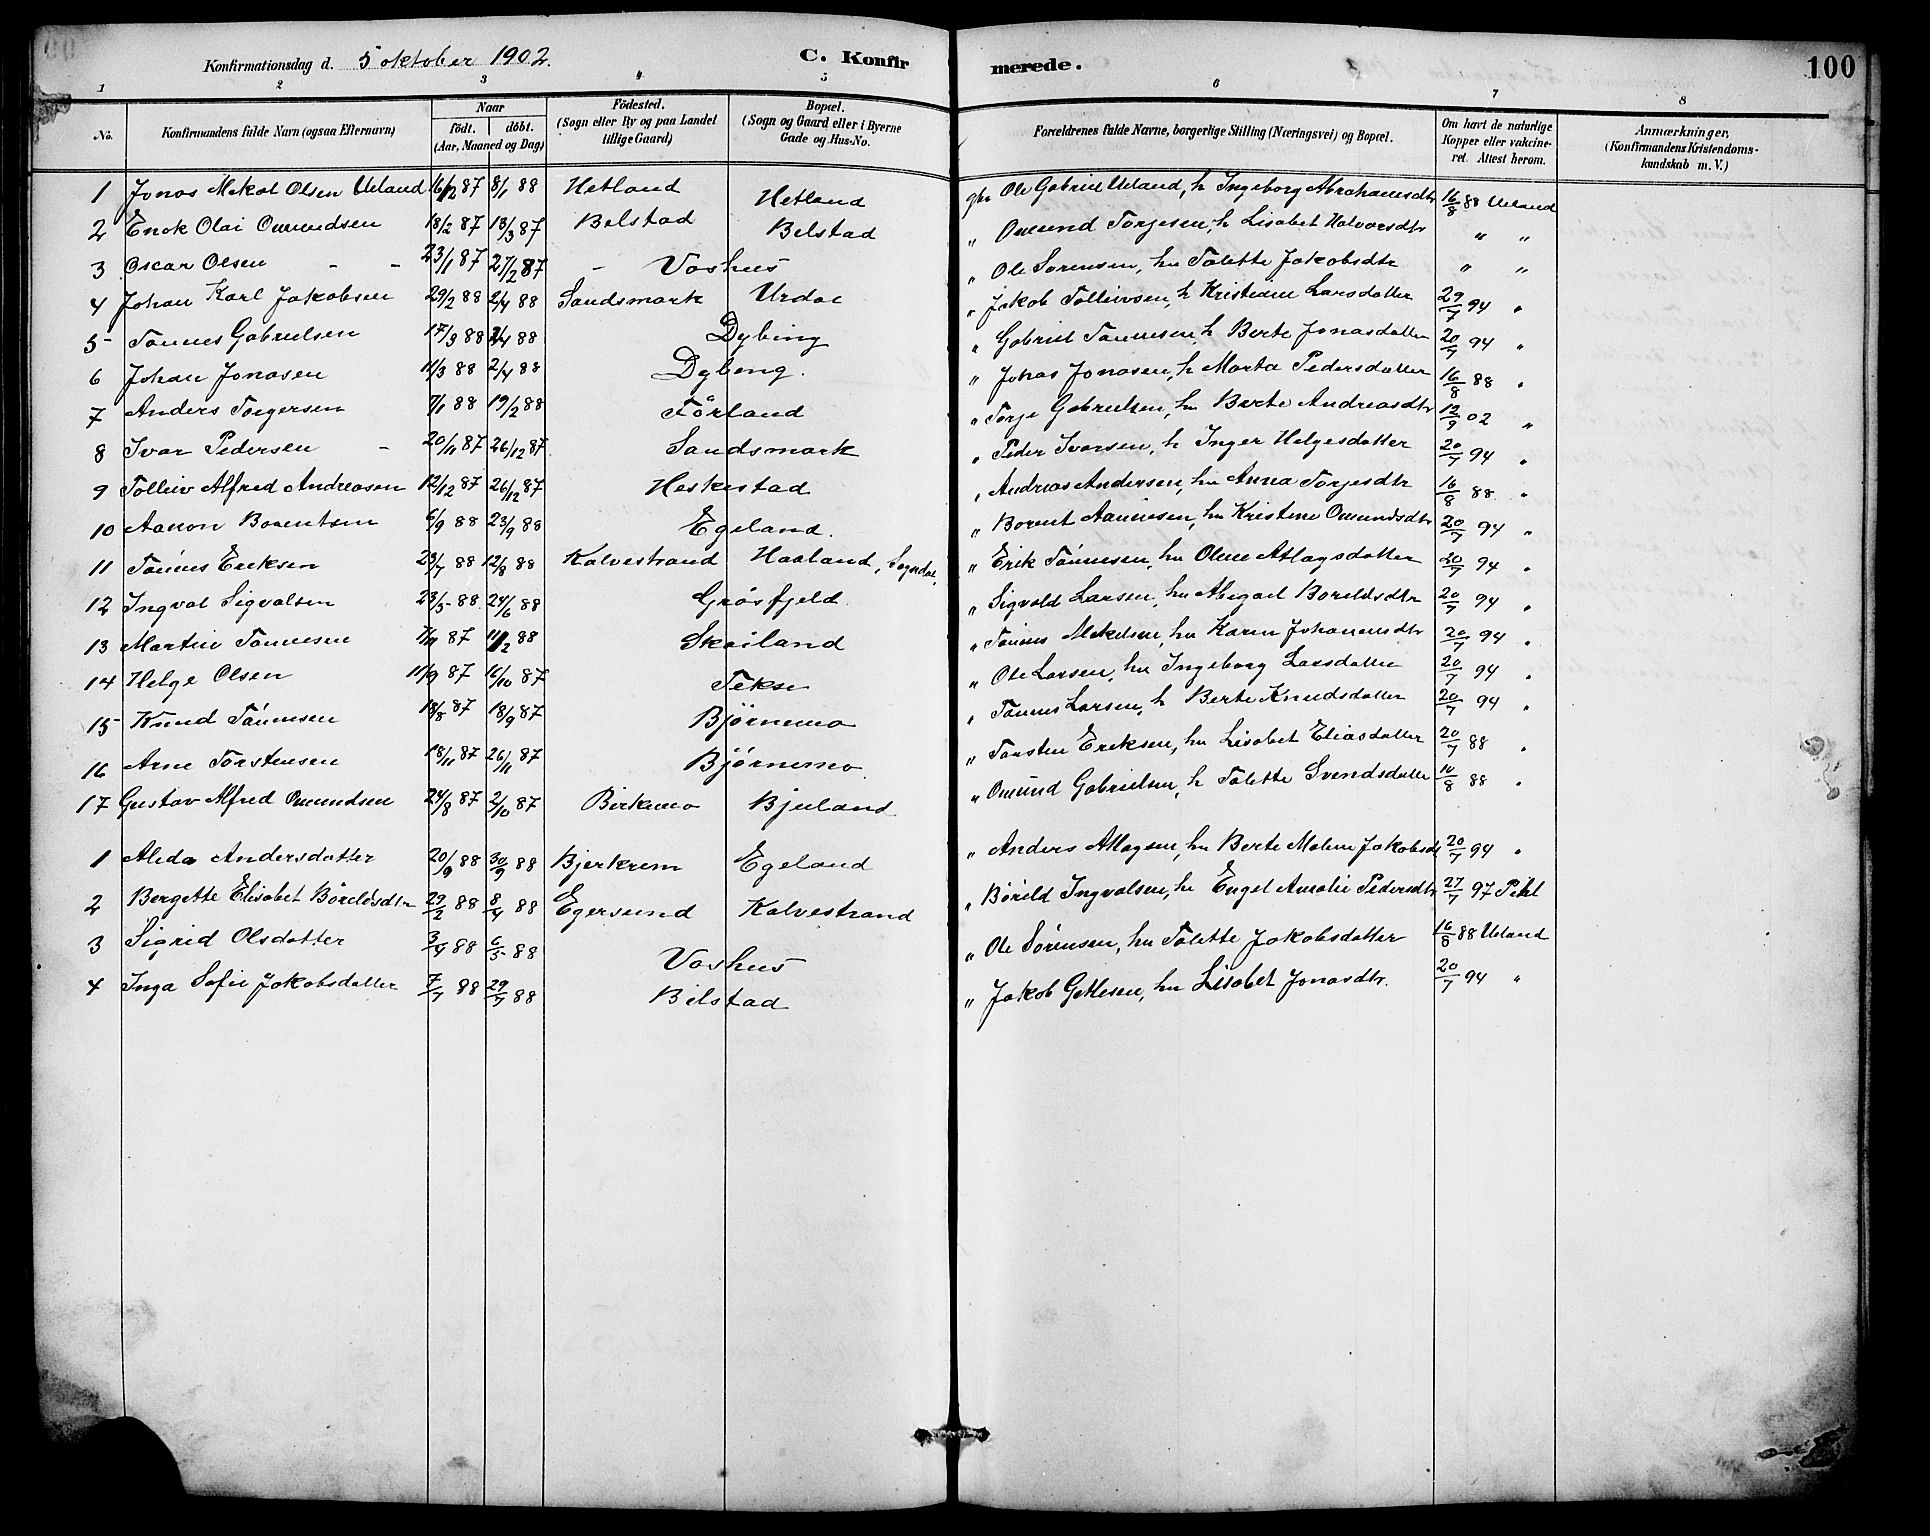 Konfirmationsdag d. 5 oktober 1902. C. Konfirmerede. 100
1 2 3 4 5 6 7 8
No. Konfirmandens fulde Navn (ogsaa Efternavn) Naar født. døbt. (Aar, Maaned og Dag) Fødested. (Sogn eller By og paa Landet tillige Gaard) Bopæl. (Sogn og Gaard eller i Byerne Gade og Hus-No. Forældrenes fulde Navne, borgerlige Stilling (Næringsvei) og Bopæl. Om havt de naturlige Kopper eller vaccineret. Attest herom. Anmærkninger, (Konfirmandens Kristendomskundskab m. V.)
1 Jonas Mekal Olsen Ueland 16/12 87 8/1 88 Hetland Hetland Ole Gabriel Ueland, h Ingeborg Abrahamsdtr 16/8 88 Ueland
2 Enok Olai Omundsen 18/2 87 13/3 87 Bilstad Bilstad " Omund Torjesen, h Lisabet Halvorsdtr " "
3 Oscar Olsen - - 23/1 87 27/2 87 - Vashus " Ole Sørensen, hu Talette Jakobsdtr " "
4 Johan Karl Jakobsen 29/2 88 2/4 88 Sandsmark Urdal " Jakob Tollivsen, h Kristiane Larsdatter 29/7 94 "
5 Tønnes Gabrielsen 17/3 88 2/4 88 Dybing " Gabriel Tønnesen, h Berte Jonasdatter 20/7 94 "
6 Johan Jonasen 11/3 88 2/4 88 Dybing. " Jonas Jonasen, h Marta Pedersdatter 16/8 88 "
7 Anders Torgersen 7/1 88 19/2 88 Førland " Torje Gabrielsen, hu Berte Andreasdtr 12/9 02 "
8 Ivar Pedersen - 20/11 87 26/12 87 Sandsmark " Peder Ivarsen, h Inger Helgesdatter 20/7 94 "
9 Tolleiv Alfred Andreasen 12/12 87 26/12 87 Heskestad " Andreas Andersen, hu Anna Torjesdtr 16/8 88 "
10 Aanon Berentsen 6/9 88 23/9 88 Egeland. " Berent Aanensen, hu Kristine Omundsdtr 20/7 94 "
11 Tønnes Eriksen 23/7 88 12/8 88 Kalvestrand Haaland, Sogndal, " Erik Tønnesen, hu Oline Atlagsdatter 20/7 94 "
12 Ingval Sigvalsen 23/5 88 24/6 88 Grøsfjeld " Sigvald Larsen, hu Abigael Børildsdtr 20/7 94 "
13 Martin Tønnesen 7/11 87 11/2 88 Skailand " Tønnes Mekelsen, hu Karen Johannesdtr 20/7 94 "
14 Helge Olsen 11/9 87 16/10 87 Tekse " Ole Larsen, hu Ingeborg Larsdatter 20/7 94 "
15 Knud Tønnesen 18/8 87 18/9 87 Bjørnemo " Tønnes Larsen, h Berte Knudsdatter 20/7 94 "
16 Arne Torstensen 18/11 87 26/11 87 Bjørnemo " Torsten Eriksen, hu Lisabet Eliasdatter 20/7 88 "
17 Gustav Alfred Omundsen 24/8 87 2/10 87 Birkemo Bjuland " Omund Gabrielsen, h Talette Svendsdatter 10/8 88 "
1 Alida Andersdatter 20/9 88 30/9 88 Bjerkrem Egeland " Anders Atlagsen, hu Berte Malene Jakobsdt 20/7 94 "
2 Bergette Elisabet Børildsdtr 29/2 88 8/4 88 Egersund Kalvestrand " Børild Ingvalsen, hu Engel Amalie Pedersdtr 27/7 97 Pihl
3 Sigrid Olsdatter 3/4 88 6/5 88 Vashus " Ole Sørensen, hu Talette Jakobsdatter 16/8 88 Ueland
4 Inga Sofie Jakobsdatter 7/7 88 29/7 88 Bilstad " Jakob Gitlesen, hu Lisabet Jonasdtr. 20/7 94 "